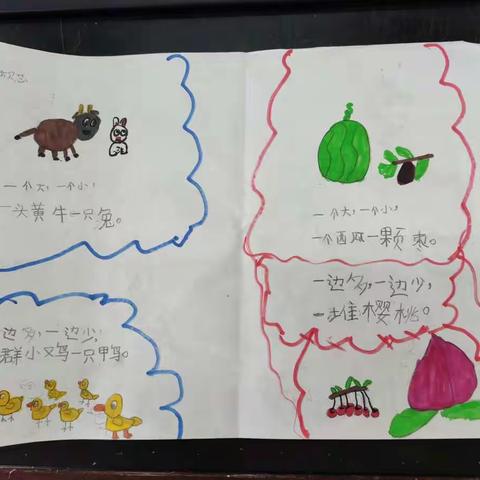 一个大,一个小,
一头黄牛一只兔。
边多,一边少,
群小鸡一只鸭。
一个大,一个小,
一个西瓜一颗枣。
一边多,一边少,
一堆樱桃。